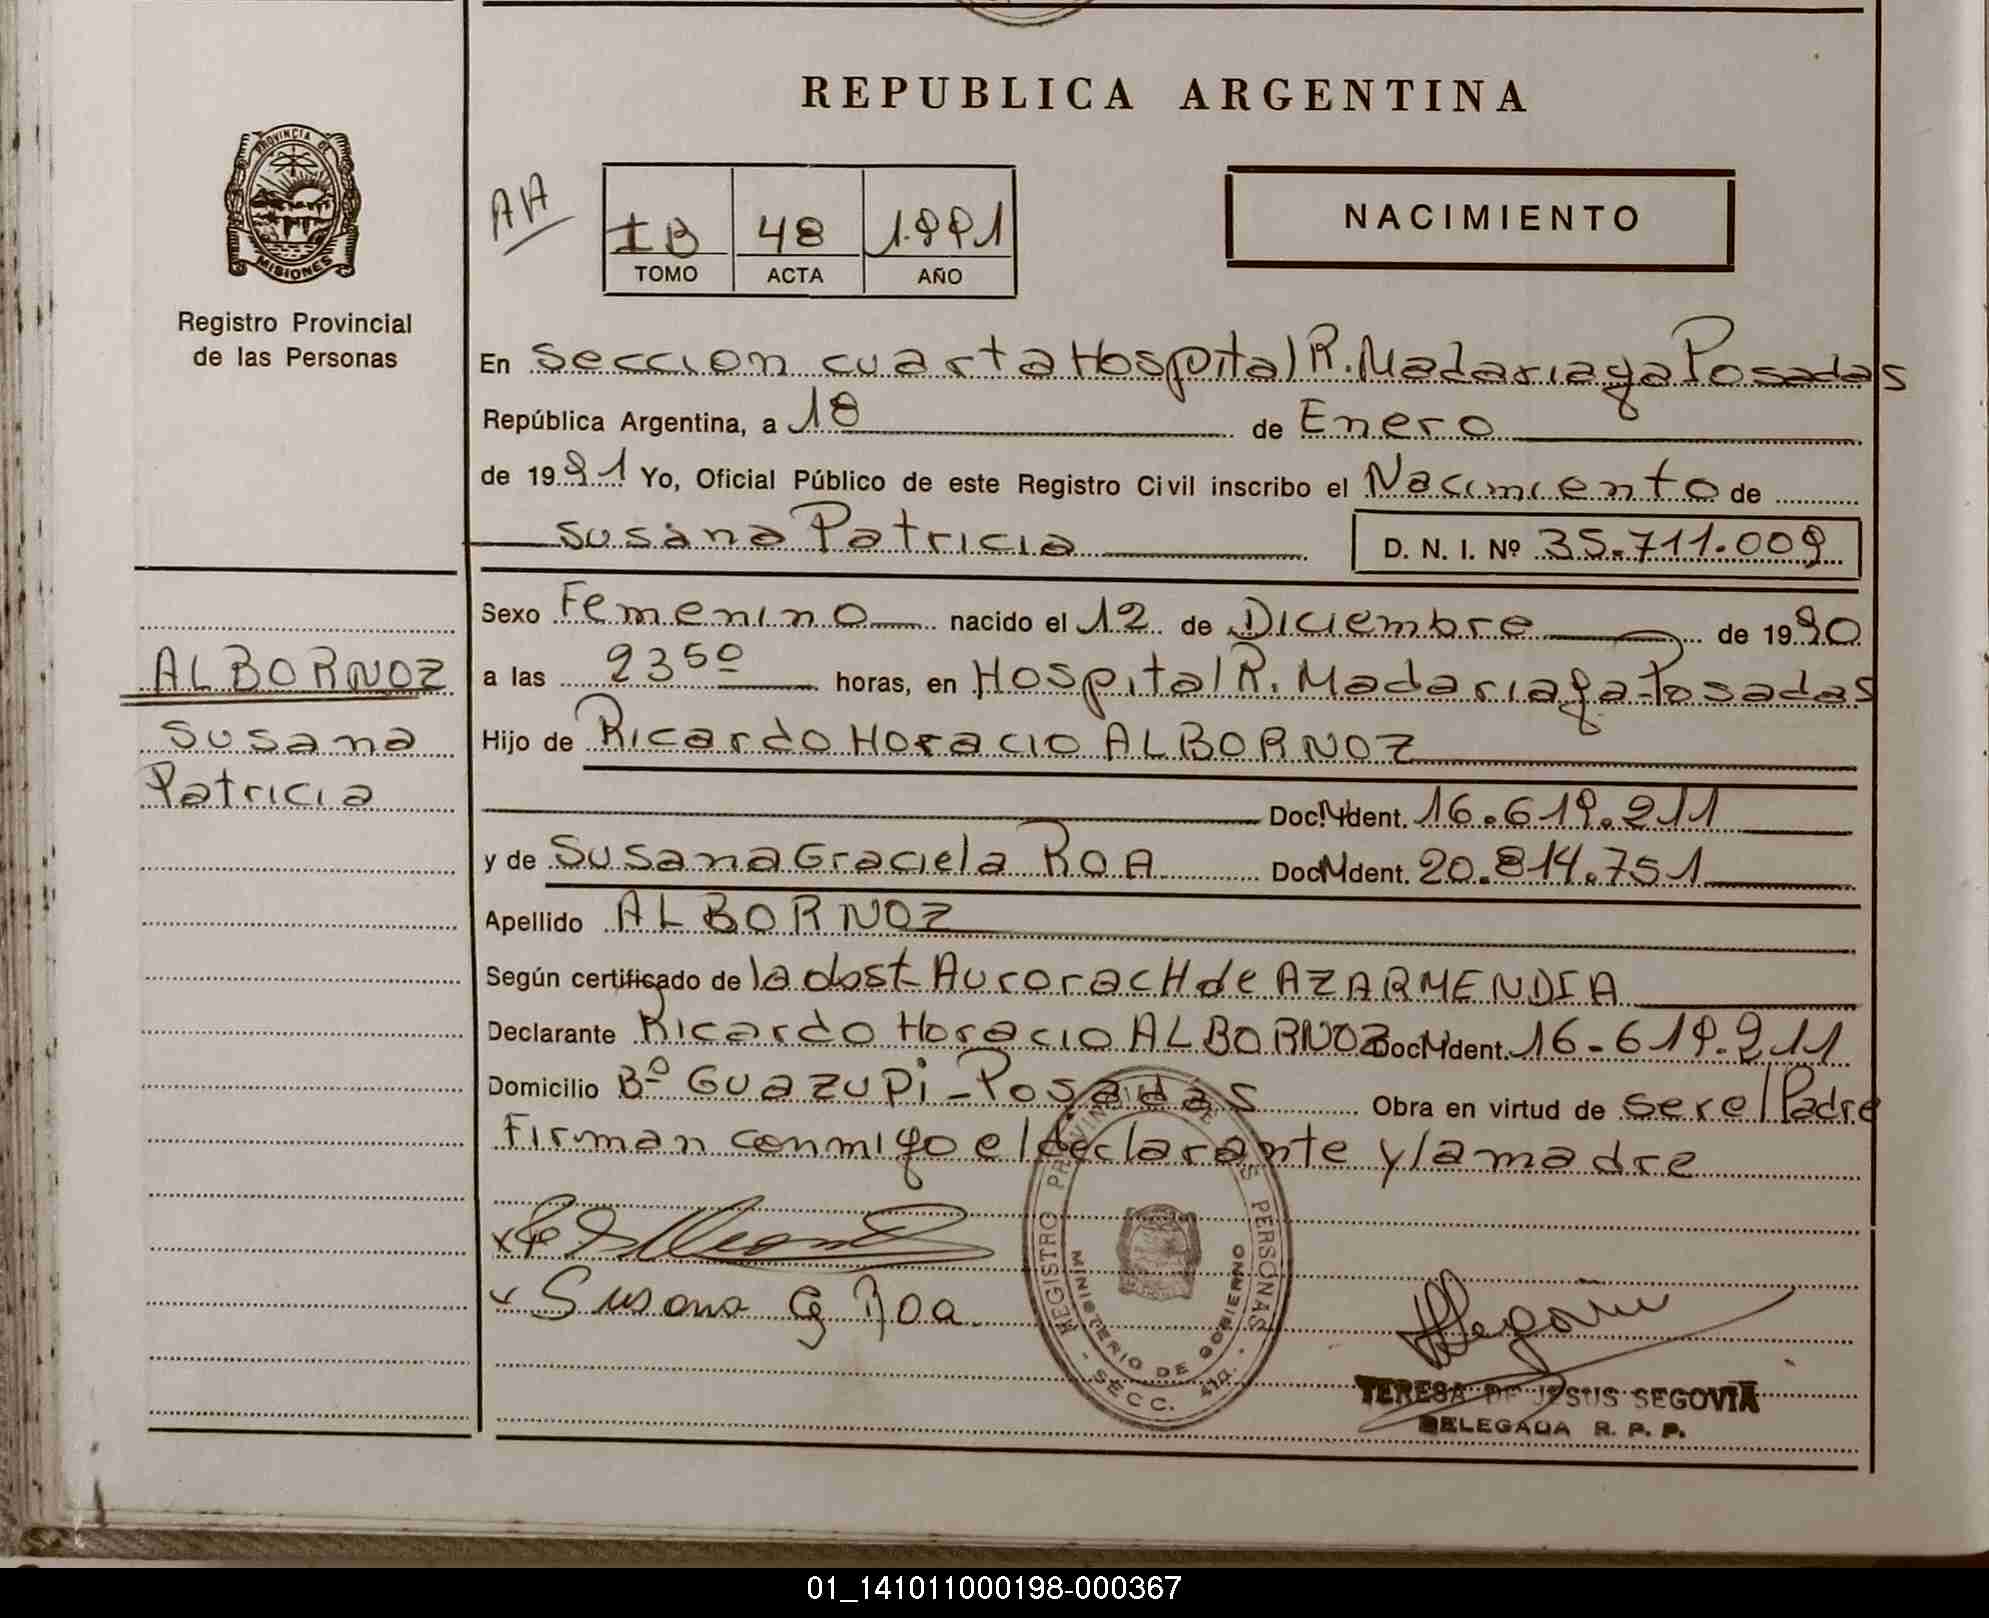 REPUBLICA ARGENTINA
PROVINCIA DE
MISIONES
Registro Provincial
de las Personas
AA
IB 48 1.991
TOMO ACTA AÑO
NACIMIENTO
En seccion cuarta Hospital R. Madariaga Posadas
República Argentina, a 18 de Enero
de 1991 Yo, Oficial Público de este Registro Civil inscribo el Nacimiento de
Susana Patricia D. N. I. Nº 35.711.009
Sexo Femenino nacido el 12 de Diciembre de 1990
a las 23 50 horas, en Hospital R. Madariaga-Posadas
Hijo de Ricardo Horacio ALBORNOZ
Doc. N. Ident. 16.619.211
y de Susana Graciela ROA Doc. N. Ident. 20.814.751
Apellido ALBORNOZ
Según certificado de la obst Aurora CH de AZARMENDIA
Declarante Ricardo Horacio ALBORNOZ Doc. N. Ident. 16-619.211
Domicilio Bº Guazupi - Posadas Obra en virtud de ser el Padre
Firman conmigo el declarante y la madre
ALBORNOZ
Susana
Patricia
x Susana G Roa
REGISTRO PROVINCIAL DE LAS PERSONAS
MINISTERIO DE GOBIERNO
- SECC. 4ta. -
TERESA DE JESUS SEGOVIA
DELEGADA R. P. P.
01_141011000198-000367